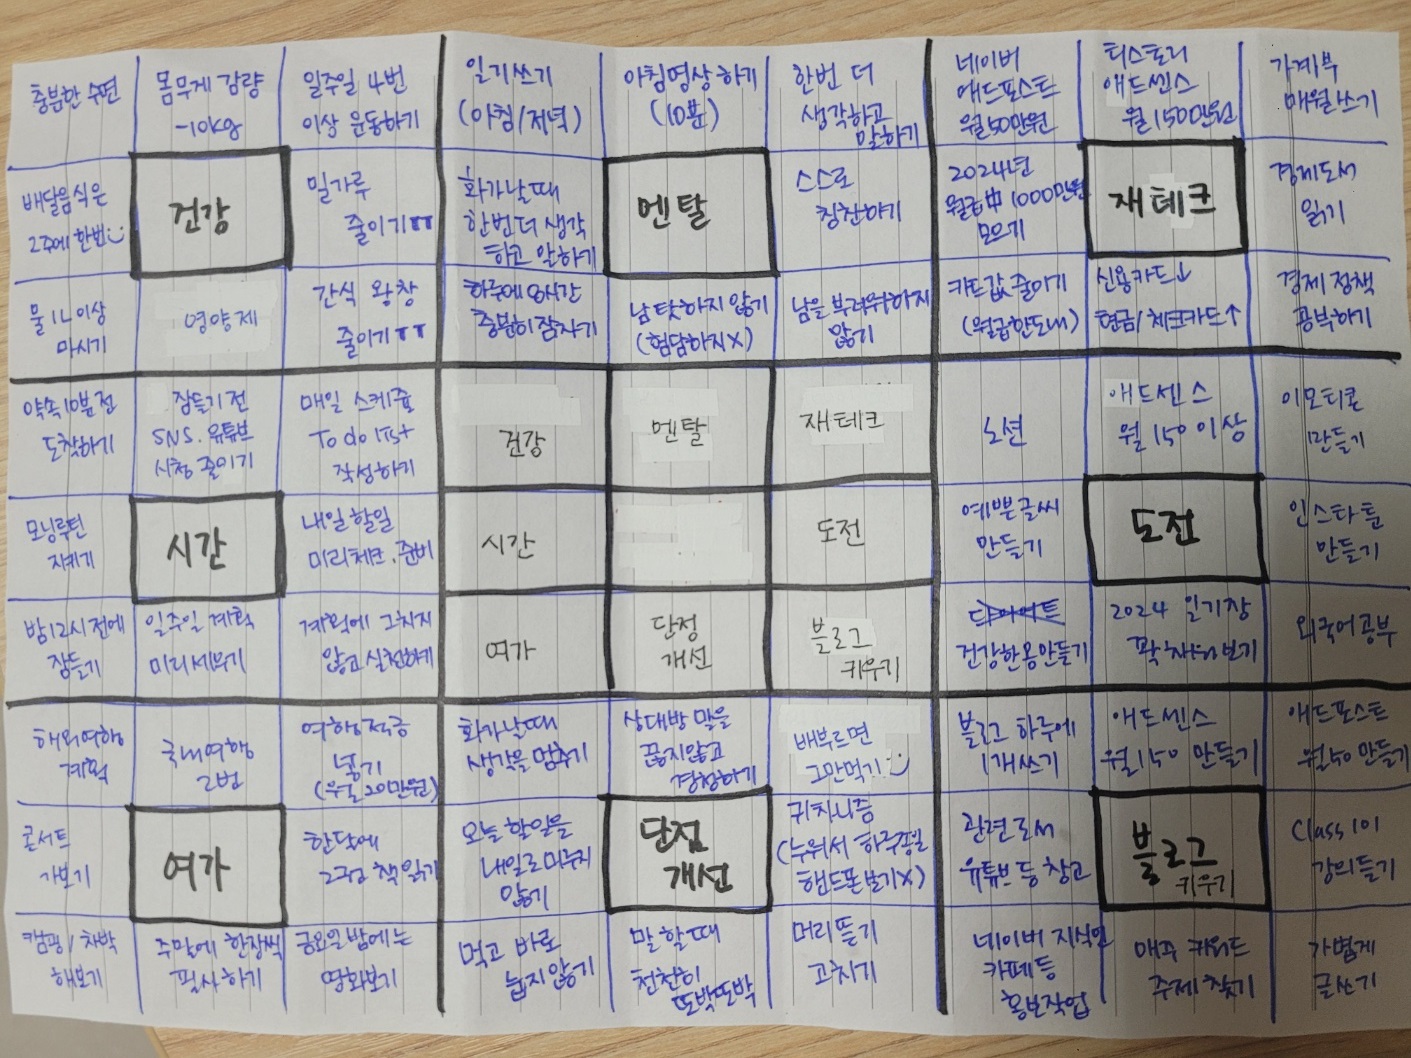 충분한 수면
몸무게 감량
-10kg
일주일 4번
이상 운동하기
일기쓰기
(아침/저녁)
아침명상하기
(10분)
한번 더
생각하고
말하기
네이버
애드포스트
월50만원
티스토리
애드센스
월1500만원
가계부
매월쓰기
배달음식은
2주에 한번
건강
밀가루
줄이기ㅠㅠ
화가날때
한번더 생각
하고 말하기
멘탈
스스로
칭찬하기
2024년
월급中 1000만원
모으기
재테크
경제도서
읽기
물 1L 이상
마시기
영양제
간식 왕창
줄이기ㅠㅠ
하루에 8시간
충분히 잠자기
남탓하지 않기
(험담하지X)
남을 부러워하지
않기
카드값 줄이기
(월급한도내)
신용카드↓
현금/체크카드↑
경제 정책
공부하기
약속10분전
도착하기
잠들기 전
SNS. 유튜브
시청 줄이기
매일 스케쥴
To do list
작성하기
건강
멘탈
재테크
노션
애드센스
월 150 이상
이모티콘
만들기
모닝루틴
지키기
시간
내일 할일
미리체크. 준비
시간
도전
예쁜글씨
만들기
도전
인스타툰
만들기
밤12시 전에
잠들기
일주일 계획
미리세우기
계획에 그치지
않고 실천하기
여가
단점
개선
블로그
키우기
다이어트
건강한몸만들기
2024 일기장
꽉 채워보기
외국어공부
해외여행
계획
국내여행
2번
여행적금
넣기
(월 20만원)
화가날때
생각을 멈추기
상대방 말을
끊지않고
경청하기
배부르면
그만먹기
블로그 하루에
1개쓰기
애드센스
월150 만들기
애드포스트
월50 만들기
콘서트
가보기
여가
한달에
2권 책읽기
오늘 할일을
내일로 미루지
않기
단점
개선
귀차니즘
(누워서 하루종일
핸드폰보기X)
관련도서
유튜브 등 참고
블로그
키우기
Class101
강의듣기
캠핑/차박
해보기
주말에 한장씩
필사하기
금요일밤에는
영화보기
먹고 바로
눕지않기
말할때
천천히
또박또박
머리뜯기
고치기
네이버 지식인
카페등
홍보작업
매주 키워드
주제 찾기
가볍게
글쓰기